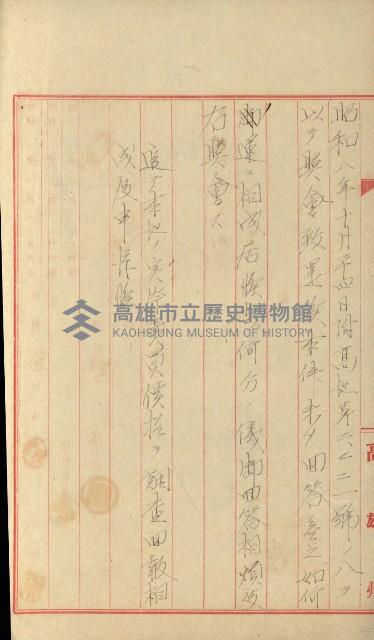 昭和八年十月二十四日附高地第二、七二一號ノ八ヲ
以テ照會致置候本件未タ回答無之如何
相成居候何分ノ儀御回答相煩度
右照會ス
追テ本地ノ實 買價格ヲ調查回報相
成度申添候
高雄州
高雄市立歷史博物館
KAOHSIUNG MUSEUM OF HISTORY